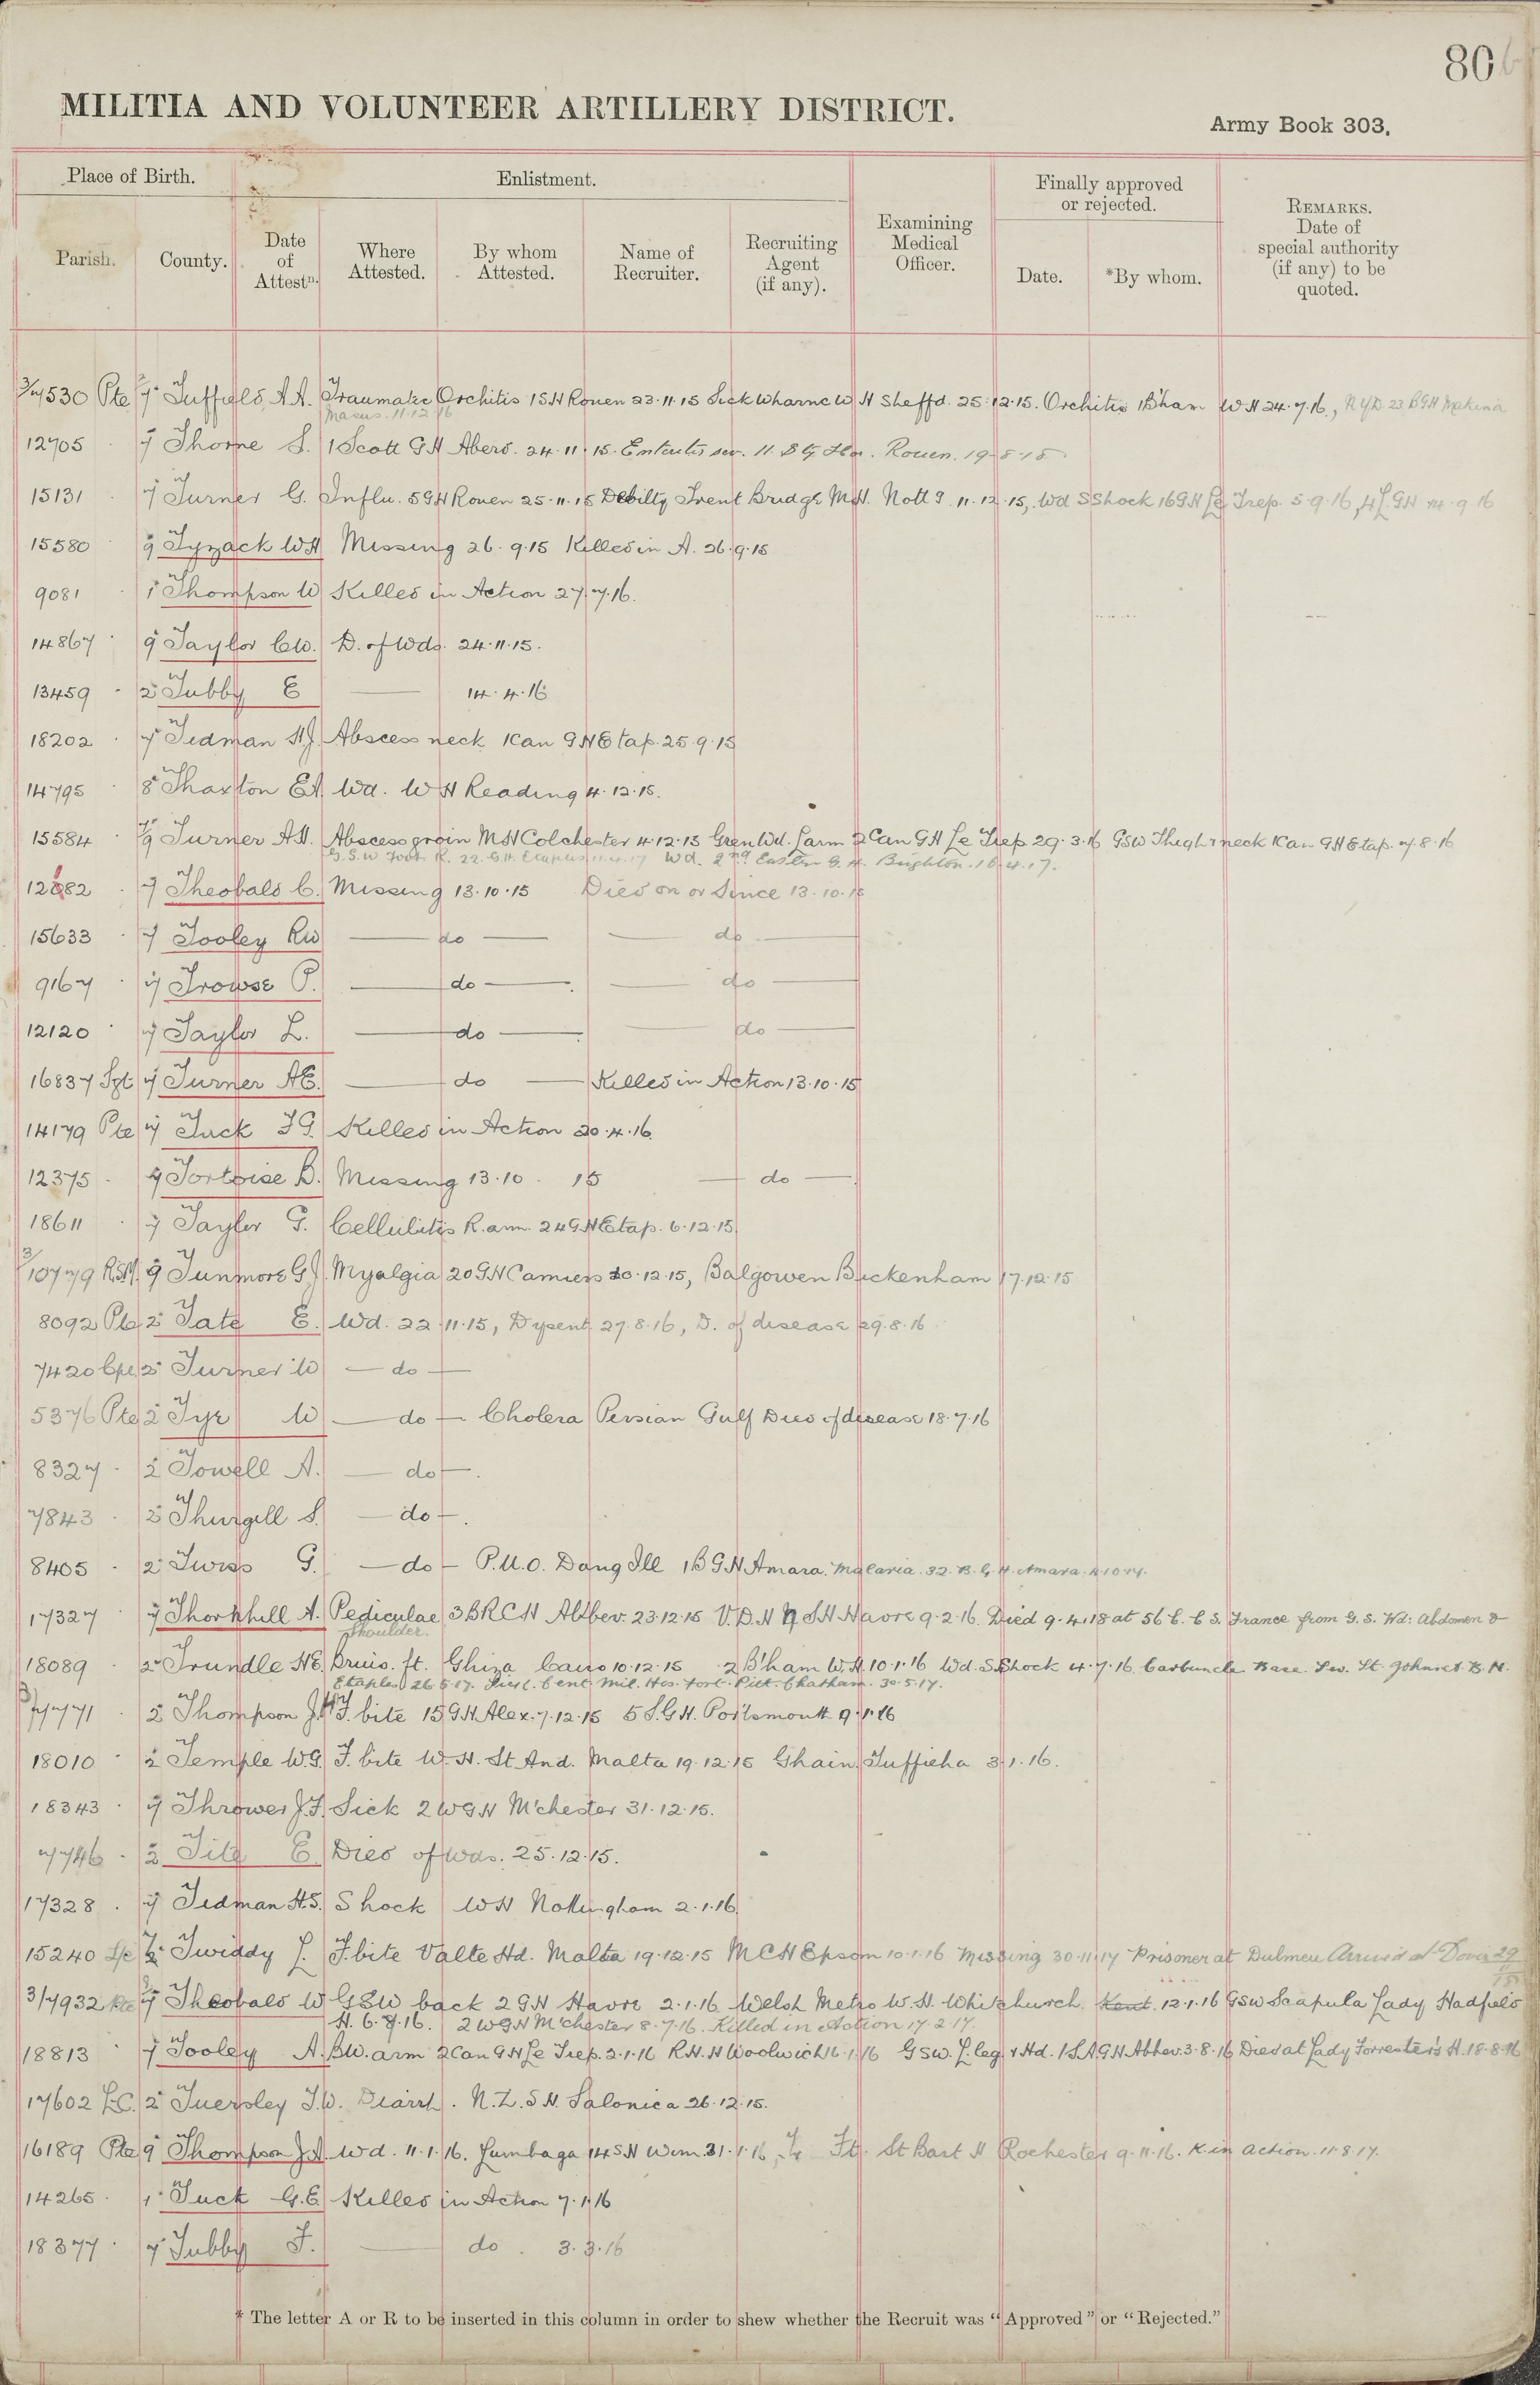 80
MILITIA AND VOLUNTEER ARTILLERY DISTRICT.
Army Book 303.
Place of Birth.
Enlistment.
Finally approved or rejected.
REMARKS. Date of special authority (if any) to be quoted.
Parish.
County.
Date of Attestn.
Where Attested.
By whom Attested.
Name of Recruiter.
Recruiting Agent (if any).
Examining Medical Officer.
Date.
*By whom.
3/4530 Pte 7 Tuffield A.A. Traumatic Orchitis 1 S H Rouen 23.11.15 Sick Wharncl W H Sheffd. 25.12.15. Orchitis 1 B'ham W H 24.7.16., N Y D. 23 B G H
11.12.16
12705 7 Thorne S. 1 Scott G H Aberd. 24.11.15. Enteritis sev. 11 Sty Hos. Rouen. 19.8.18
15131 7 Turner G. Influ. 5 G H Rouen 25.11.15 Debilty Trent Bridge M H. Nott 9.11.12.15, Wd S Shock 16 G H Le Trep. 5.9.16, 4 L G H 14.9.16
15580 9 Tyzack W H Missing 26.9.15 Killed in A. 26.9.15
9081 1 Thompson W Killed in Action 27.7.16.
14867 9 Taylor C W. D. of Wds. 24.11.15.
13459 2 Tubby E 14.4.16
18202 7 Tedman H J. Abscess neck 1 Can G H Etap. 25.9.15
14795 8 Thaxton E A. Wd. W H Reading 4.12.15.
15584 7/9 Turner A H. Abscess groin M H Colchester 4.12.15 Gren Wd. L arm 2 Can G H Le Trep 29.3.16 GSW Thigh & neck 1 Can G H Etap. 7.8.16
G.S.W Foot R. 22. G.H. Etaples 11.4.17 Wd. 2nd Eastn G.H. Brighton. 16.4.17.
12682 7 Theobald C. Missing 13.10.15 Died on or Since 13.10.15
15633 7 Tooley R W do do
9167 7 Trowse P. do do
12120 7 Taylor L. do do
16837 Sgt 7 Turner A E. do Killed in Action 13.10.15
14179 Pte 7 Tuck F G. Killed in Action 20.4.16.
12375 7 Tortoise B. Missing 13.10.15 do
18611 7 Tayler G. Cellulitis R. arm. 24 G H Etap. 6.12.15
3/10779 R.S.M. 9 Tunmore G J. Myalgia 20 G H Camiers 10.12.15, Balgowen Beckenham 17.12.15
8092 Pte 2 Tate E. Wd. 22.11.15, Dysent 27.8.16, D. of disease 29.8.16
7420 Cpl 2 Turner W do
5376 Pte 2 Tye W do Cholera Persian Gulf Died of disease 18.7.16
8327 2 Towell A. do
7843 2 Thurgill S. do
8405 2 Twiss G. do P.U.O. Dang Ill 1 B G H Amara. Malaria. 32. B. G. H. Amara. 4.10.17.
17327 7 Thornhill A. Pediculae 3 B R C H Abbev. 23.12.15 V.D.N 9 S H Havre 9.2.16. Died 9.4.18 at 56 C.C S. France from G.S. Wd: Abdomen &
Shoulder.
18089 2 Trundle H E. Bruis. ft. Ghiza Cairo 10.12.15 2 B'ham W.H. 10.1.16 Wd. S Shock 4.7.16. Carbuncle Base
Etaples 26.5.17. Mil. Hos. Fort. Pitt. Chatham. 30.5.17.
3/7771 2 Thompson J H F. bite 15 G H Alex. 7.12.15 5 S. G H. Portsmouth 9.1.16
18010 2 Temple W G. F. bite W. H. St And. Malta 19.12.15 Ghain Tuffieha 3.1.16.
18343 7 Thrower J. F. Sick 2 W G H M'chester 31.12.15.
7746 2 Tite E. Died of wds. 25.12.15.
17328 7 Tedman H.S. Shock W H Nottingham 2.1.16
15240 L/c 2 Twiddy J. F. bite Valte Hd. Malta 19.12.15 M C H Epsom 10.1.16 Missing 30.11.17 Prisoner at Dulmen Arrived at Dover 29
3/7932 Pte 7 Theobald W GSW back 2 G H Havre 2.1.16 Welsh Metro W. H. Whitchurch. Kent. 12.1.16 GSW Scapula Lady Hadfield
H. 6.7.16. 2 W G H M'chester 8.7.16. Killed in Action 17.2.17.
18813 7 Tooley A. B W. arm 2 Can G H Le Trep. 2.1.16 R. H. H Woolwich 16.1.16 G S W. L leg & Hd. 1 S. A G H Abbev. 3.8.16 Died at Lady Forrester's H. 18.8.16
17602 L.C. 2 Tuersley T.W. Diarrh. N. Z. S H. Salonica 26.12.15.
16189 Pte 9 Thompson J H. Wd. 11.1.16. Lumbago 14 S H Wim. 31.1.16, Tr. Ft. St Bart H Rochester 9.11.16. K in action. 11.8.17.
14265 1 Tuck G.E. Killed in Action 7.1.16
18377 7 Tubby F. do. 3.3.16
* The letter A or R to be inserted in this column in order to shew whether the Recruit was "Approved" or "Rejected."